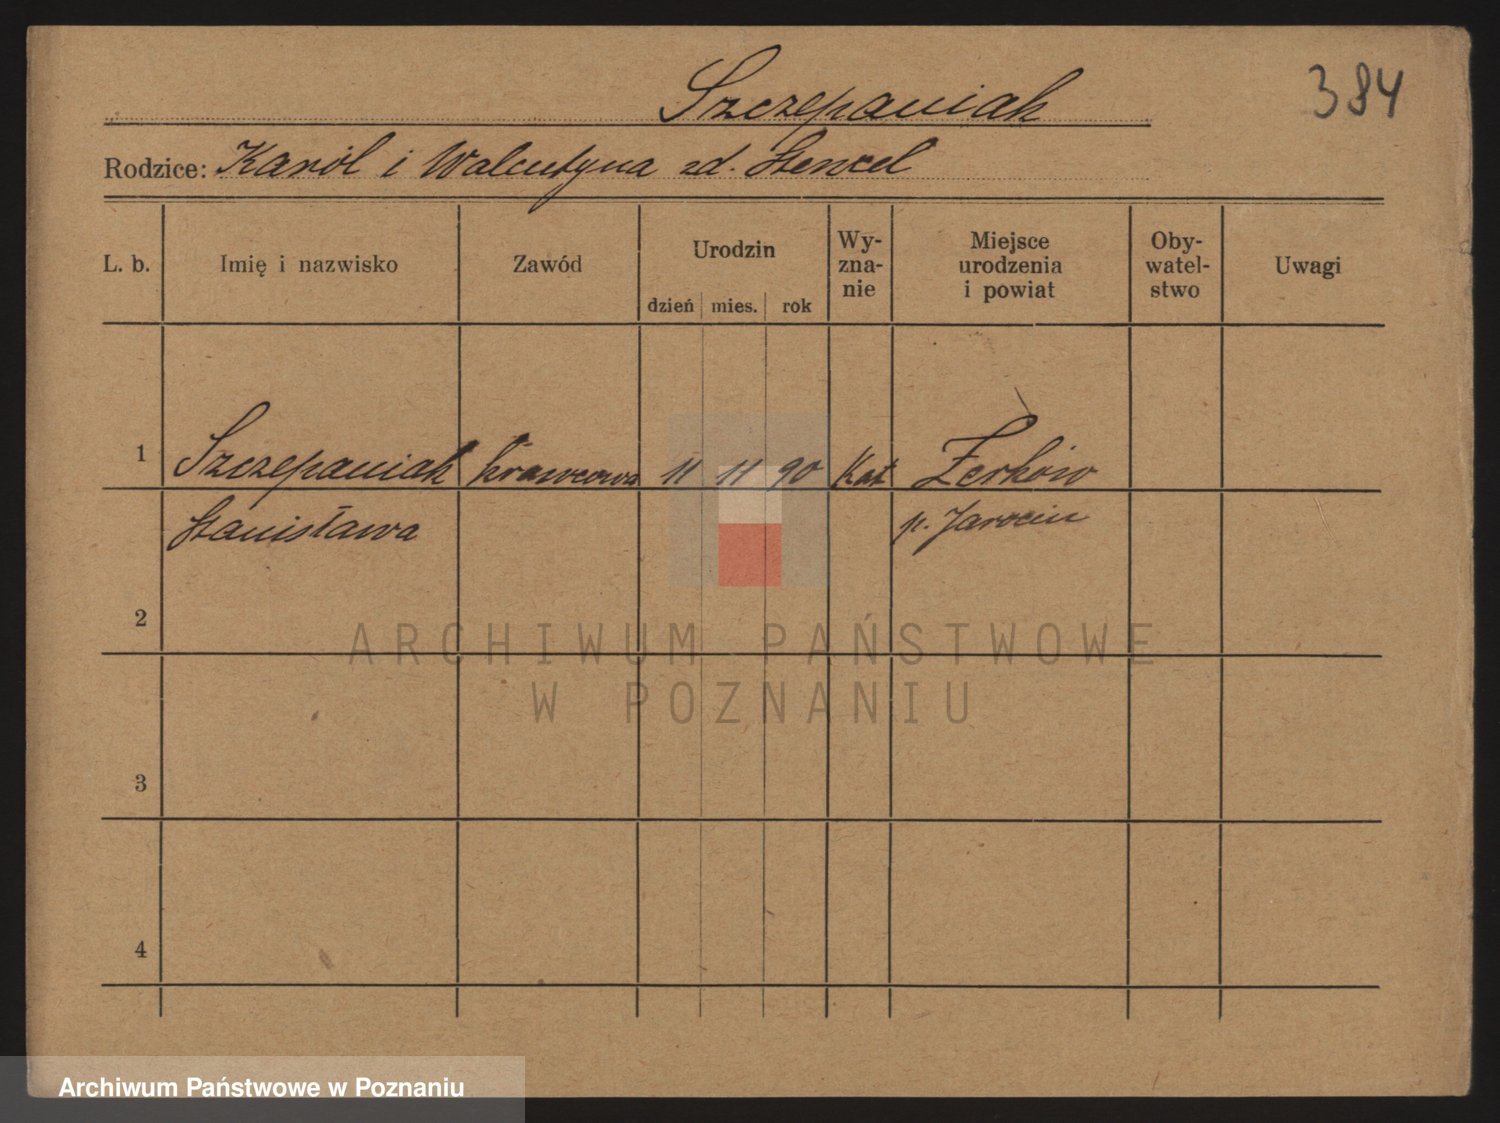 Szczepaniak
384
Rodzice: Karól i Walentyna zd. Stencel
L. b.
Imię i nazwisko
Zawód
Urodzin
dzień mies. rok
Wy-
zna-
nie
Miejsce
urodzenia
i powiat
Oby-
watel-
stwo
Uwagi
1 Szczepaniak krawcowa 11 11 90 Kat Żerków
Stanisława p. Jarocin
2
ARCHIWUM PAŃSTWOWE
W POZNANIU
3
4
Archiwum Państwowe w Poznaniu